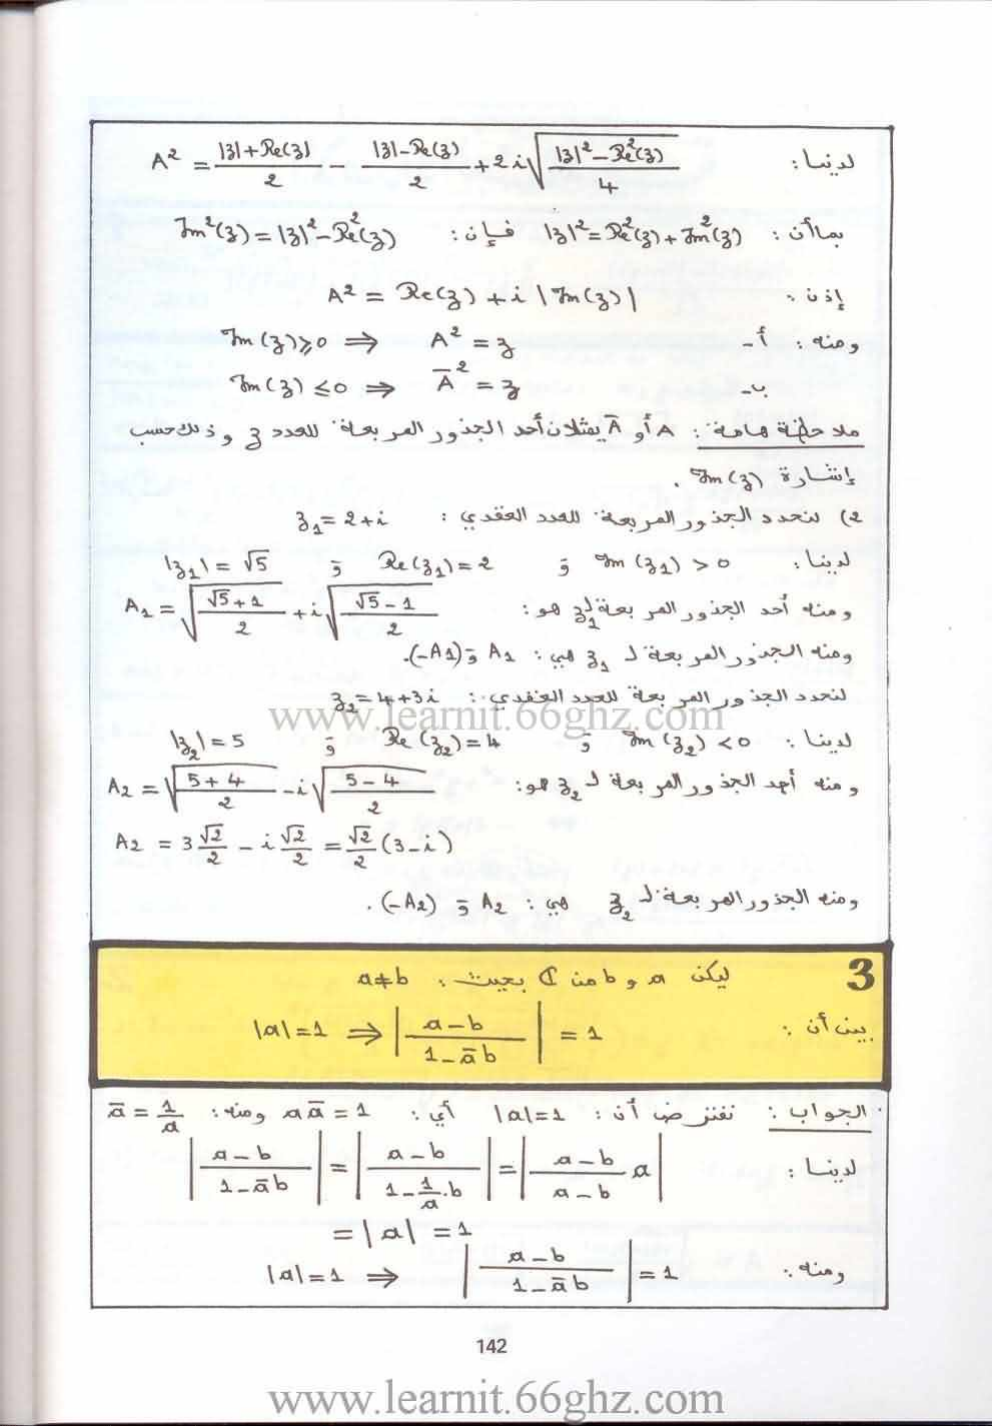 لدينا: A² = (|z|+Re(z))/2 − (|z|−Re(z))/2 + 2i√((|z|²−Re²(z))/4)
بما أن: |z|² = Re²(z) + Im²(z) فإن: Im²(z) = |z|² − Re²(z)
إذن: A² = Re(z) + i |Im(z)|
ومنه: أ- Im(z) ⩾ 0 ⟹ A² = z
ب- Im(z) ≤ 0 ⟹ Ā² = z
ملاحظة هامة: A أو Ā يمثلان أحد الجذور المربعة للعدد z وذلك حسب
إشارة Im(z).
2) لنحدد الجذور المربعة للعدد العقدي: z₁ = 2+i
لدينا: Im(z₁) > 0 و Re(z₁) = 2 و |z₁| = √5
ومنه أحد الجذور المربعة لـ z₁ هو: A₁ = √((√5+1)/2) + i√((√5−1)/2)
ومنه الجذور المربعة لـ z₁ هي: A₁ و (−A1).
لنحدد الجذور المربعة للعدد العقدي: z₂ = 4+3i
www.learnit.66ghz.com
لدينا: Im(z₂) < 0 و Re(z₂) = 4 و |z₂| = 5
ومنه أحد الجذور المربعة لـ z₂ هو: A₂ = √((5+4)/2) − i√((5−4)/2)
A₂ = 3 √2/2 − i √2/2 = √2/2 (3−i)
ومنه الجذور المربعة لـ z₂ هي: A₂ و (−A₂).
3 ليكن a و b من ℂ بحيث: a≠b
بين أن: |a|=1 ⟹ |(a−b)/(1−āb)| = 1
الجواب: نفترض أن: |a|=1 أي: aā = 1 ومنه: ā = 1/a
لدينا: |(a−b)/(1−āb)| = |(a−b)/(1−1/a.b)| = |(a−b)/(a−b) a|
= |a| = 1
ومنه: |a|=1 ⟹ |(a−b)/(1−āb)| = 1
142
www.learnit.66ghz.com